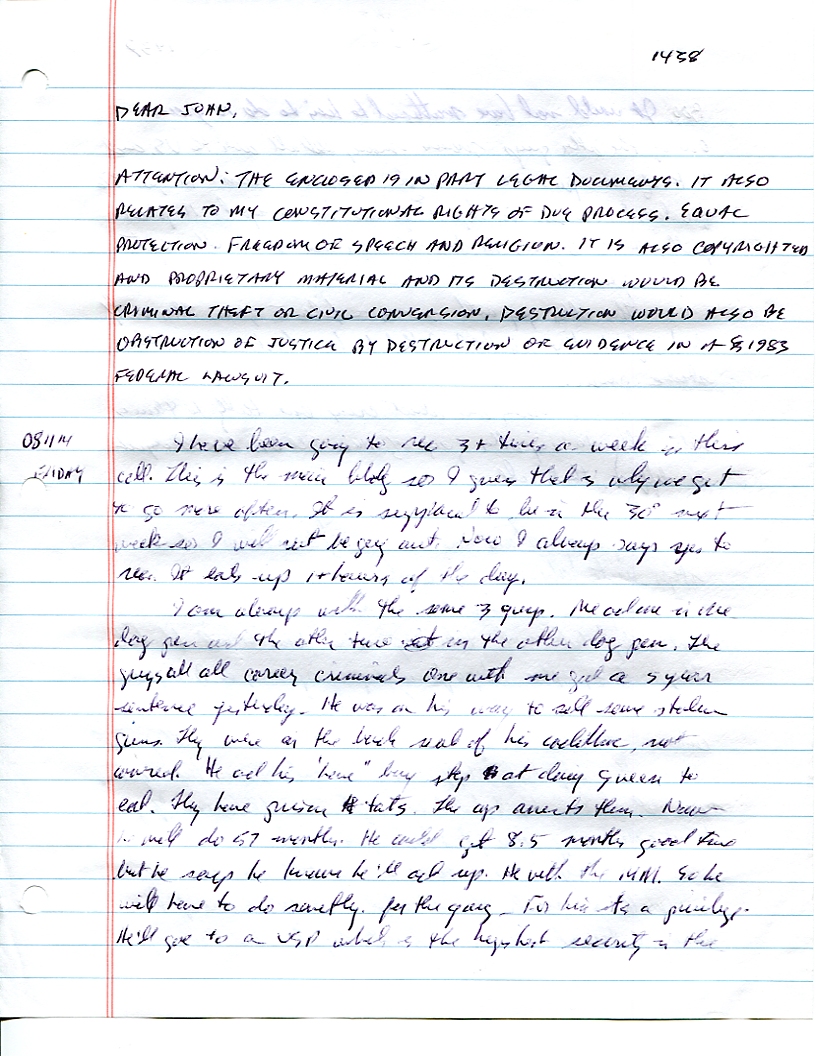 1438
DEAR JOAN,
ATTENTION: THE ENCLOSED IS IN PART LEGAL DOCUMENTS. IT ALSO
RELATES TO MY CONSTITUTIONAL RIGHTS OF DUE PROCESS. EQUAL
PROTECTION. FREEDOM OF SPEECH AND RELIGION. IT IS ALSO COPYRIGHTED
AND PROPRIETARY MATERIAL AND ITS DESTRUCTION WOULD BE
CRIMINAL THEFT OR CIVIL CONVERSION. DESTRUCTION WOULD ALSO BE
OBSTRUCTION OF JUSTICE BY DESTRUCTION OF EVIDENCE IN A § 1983
FEDERAL LAWSUIT.
FRIDAY
I have been going to rec 3+ times a week in this
cell. This is the main bldg so I guess that is why we get
to go more often. It is supposed to be in the 30s next
week so I will not be going out. Now I always says yes to
rec. It eats up 1+ hours of the day.
I am always with the same 3 guys. Me and one in one
dog pen and the other two in the other dog pen. The
guys all career criminals One with me got a 5 year
sentence yesterday. He was on his way to sell some stolen
guns. They were in the back seat of his, not
covered. He and his "home" boy stop at dairy queen to
eat. They have prison tats. The arrests them. Now
he will do 57 months. He could get 8.5 months good time
but he says he knows he'll up. He with the. So he
will have to do for the gang. For him its a privilege.
He'll go to a USP which is the highest security in the